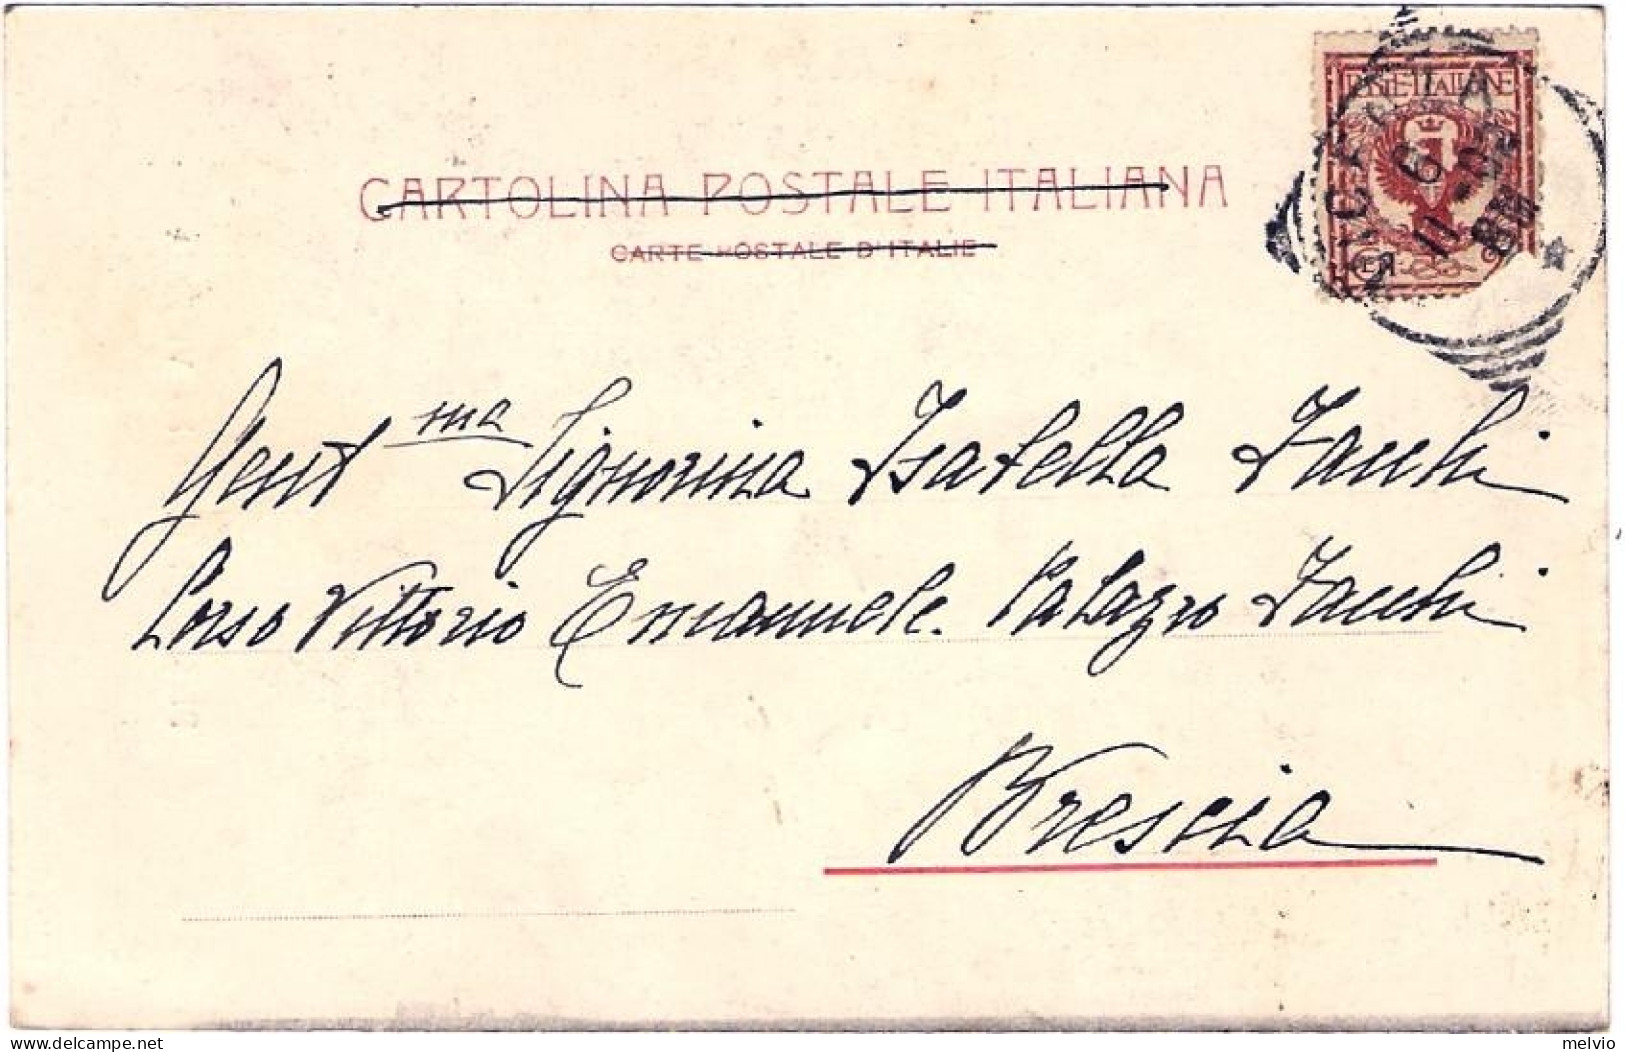 CARTOLINA POSTALE ITALIANA
CARTE POSTALE D'ITALIE
POSTE ITALIANE
6
11
Gent ma Signorina Isabella Facchi
Corso Vittorio Emanuele. Palazzo Facchi
Brescia
melvio